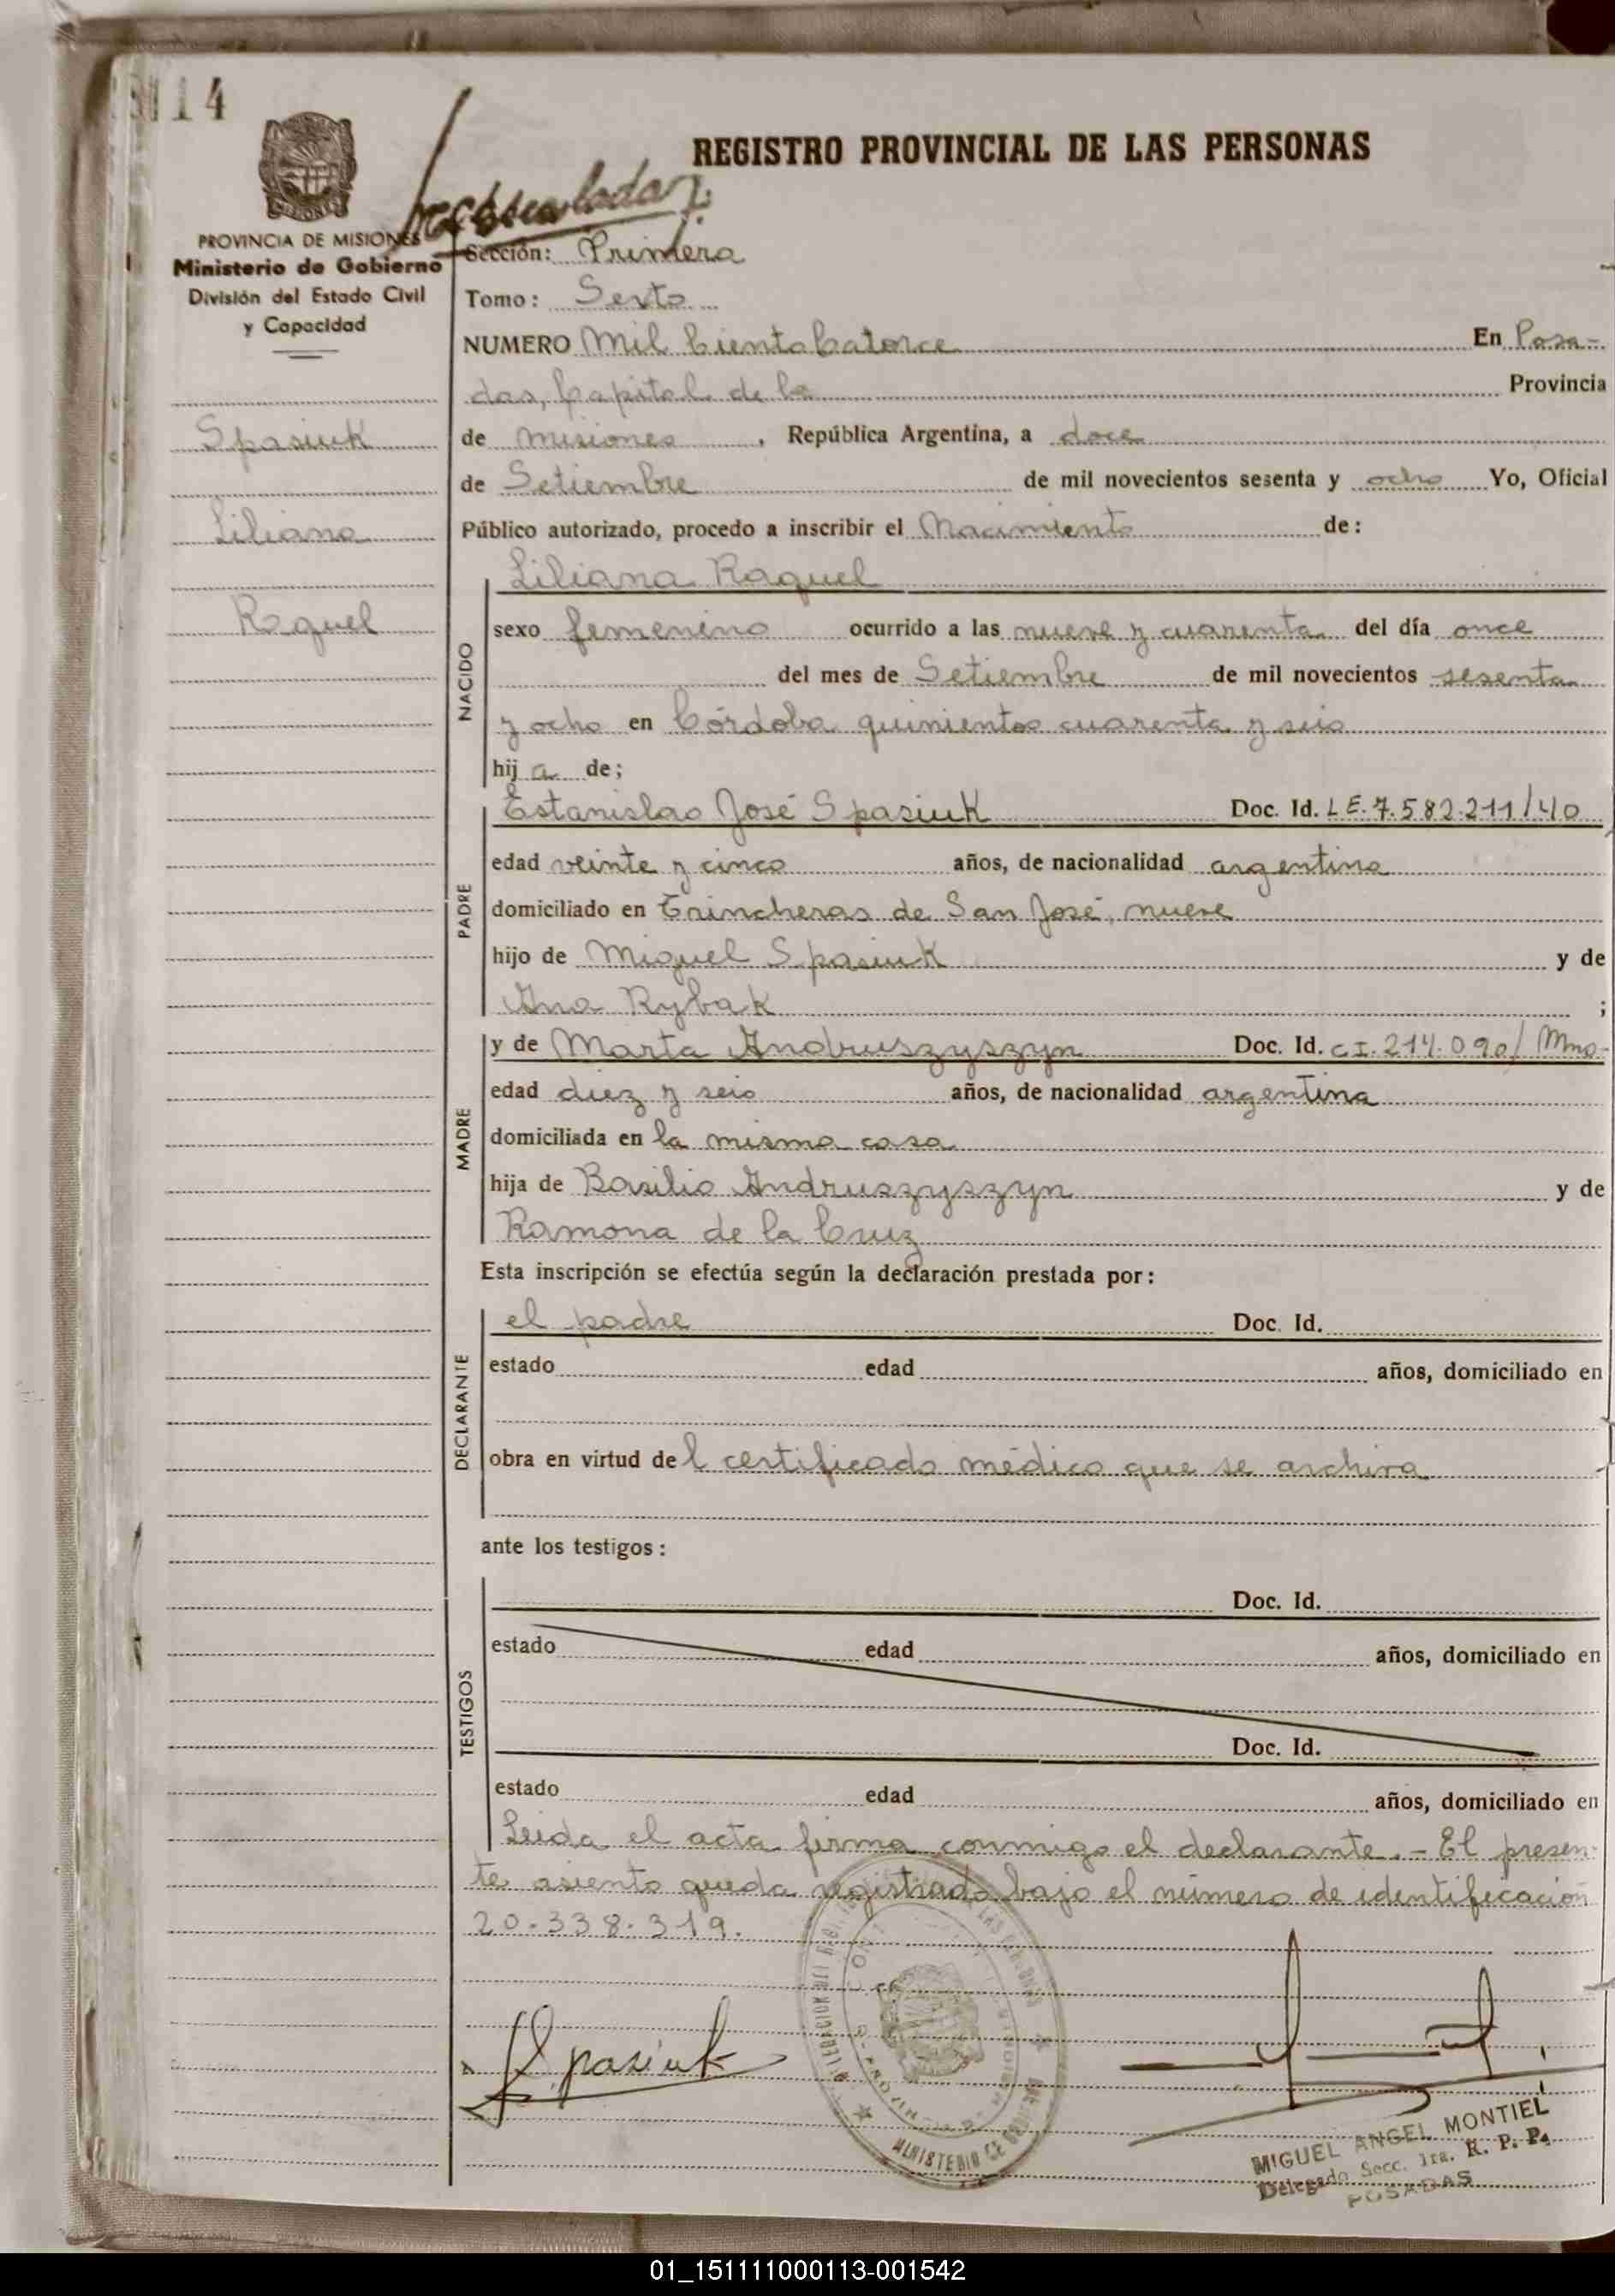 1114
REGISTRO PROVINCIAL DE LAS PERSONAS
PROVINCIA DE MISIONES
Ministerio de Gobierno
División del Estado Civil
y Capacidad
Sección: Primera
Tomo: Sexto
NUMERO Mil Ciento Catorce En Posa-
das, Capital de la Provincia
Spasiuk
de Misiones, República Argentina, a doce
de Setiembre de mil novecientos sesenta y ocho Yo, Oficial
Liliana
Público autorizado, procedo a inscribir el Nacimiento de:
Liliana Raquel
Raquel
NACIDO
sexo femenino ocurrido a las nueve y cuarenta del día once
del mes de Setiembre de mil novecientos sesenta
y ocho en Córdoba quinientos cuarenta y seis
hij a de;
PADRE
Estanislao José Spasiuk Doc. Id. L E. 7.582.211/40
edad veinte y cinco años, de nacionalidad argentina
domiciliado en Trincheras de San José, nueve
hijo de Miguel Spasiuk y de
Ana Rybak ;
MADRE
y de Marta Andruszyszyn Doc. Id. C I. 214.090/ Mnes-
edad diez y seis años, de nacionalidad argentina
domiciliada en la misma casa
hija de Basilio Andruszyszyn y de
Ramona de la Cruz
Esta inscripción se efectúa según la declaración prestada por:
DECLARANTE
el padre Doc. Id.
estado edad años, domiciliado en
obra en virtud del certificado médico que se archiva
ante los testigos:
TESTIGOS
Doc. Id.
estado edad años, domiciliado en
Doc. Id.
estado edad años, domiciliado en
Leida el acta firma conmigo el declarante.- El presen-
te asiento queda registrado bajo el número de identificación
20.338.319.
Spasiuk
MINISTERIO DE
MIGUEL ANGEL MONTIEL
Delegado Secc. 1ra. R. P. P.
POSADAS
01_151111000113-001542